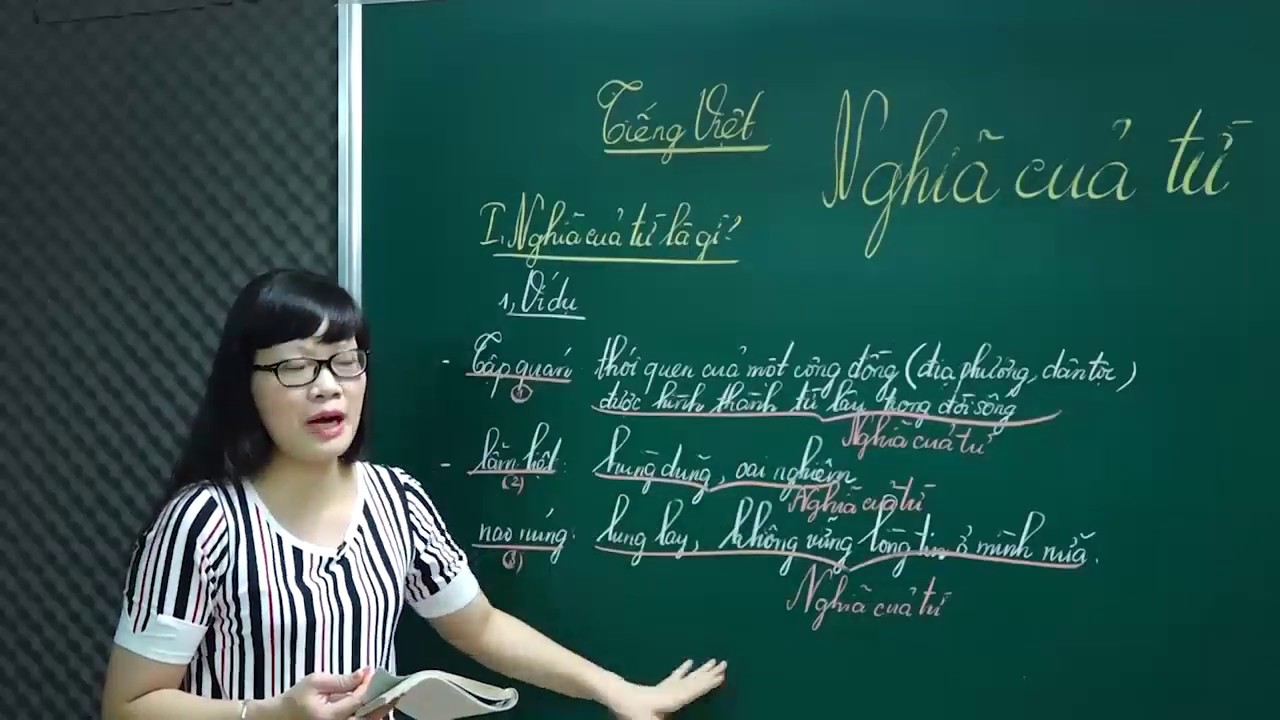 Tiếng Việt
Nghĩa của từ
I, Nghĩa của từ là gì?
1, Ví dụ
- Tập quán: thói quen của một cộng đồng (địa phương, dân tộc)
(1)
được hình thành từ lâu trong đời sống
Nghĩa của từ
- lẫm liệt: hùng dũng, oai nghiêm
(2)
Nghĩa của từ
nao núng: lung lay, không vững lòng tin ở mình nữa.
(3)
Nghĩa của từ